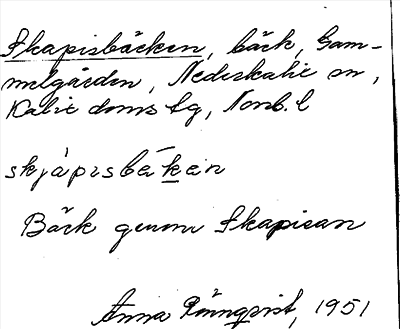 Skapisbäcken, bäck, Gam-
melgården, Nederkalix sn,
Kalix doms lg, Norrb. l
skjàpɪsbɛ́ḵen
Bäck genom Skapisan
Anna Rönnqvist, 1951